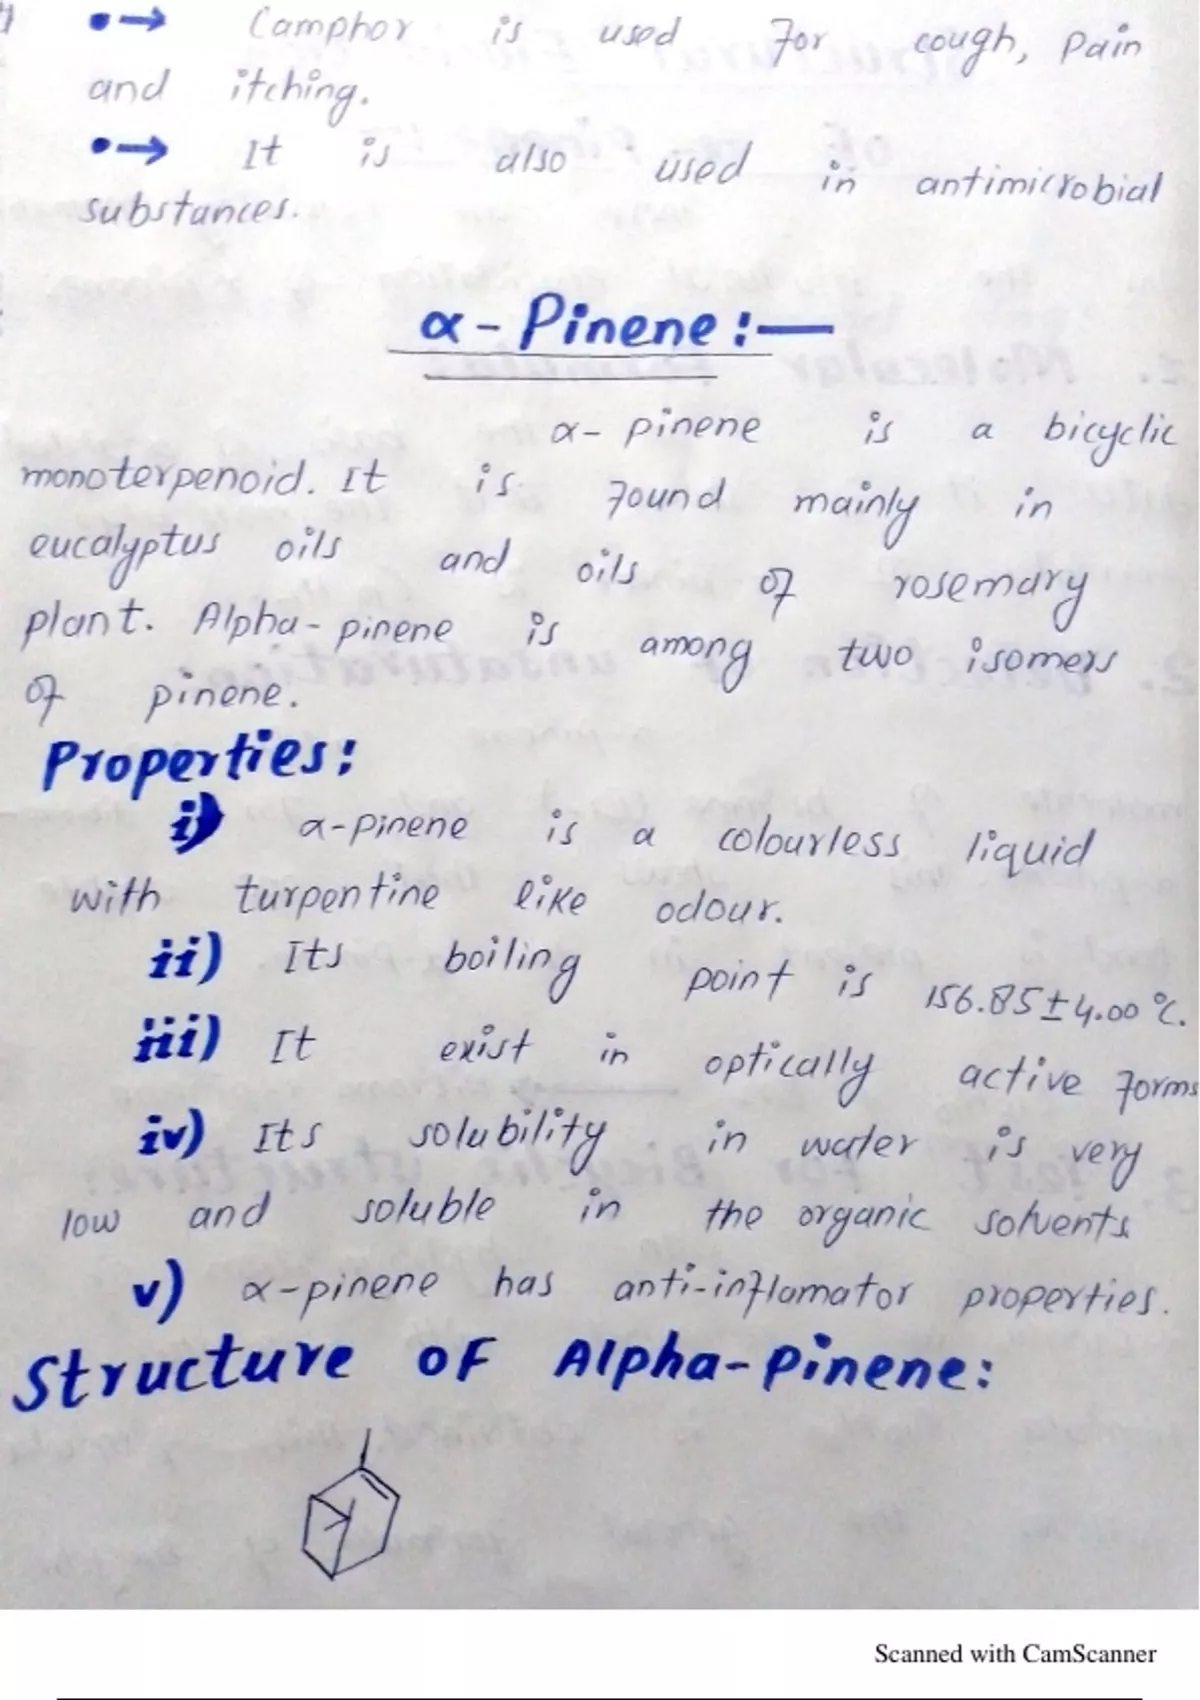 •→ Camphor is used for cough, Pain
and itching.
•→ It is also used in antimicrobial
substances.
α - Pinene :—
α - pinene is a bicyclic
monoterpenoid. It is found mainly in
eucalyptus oils and oils of rosemary
plant. Alpha - pinene is among two isomers
of pinene.
Properties:
i) α-pinene is a colourless liquid
with turpentine like odour.
ii) Its boiling point is 156.85±4.00 °C.
iii) It exist in optically active forms
iv) Its solubility in water is very
low and soluble in the organic solvents
v) α-pinene has anti-inflamator properties.
Structure of Alpha-Pinene:
Scanned with CamScanner